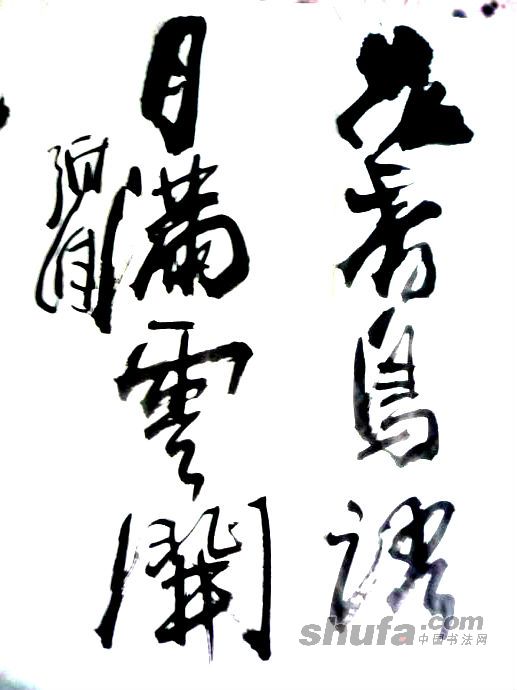 花香鳥語
月滿雲開
shufa.com
中国书法网